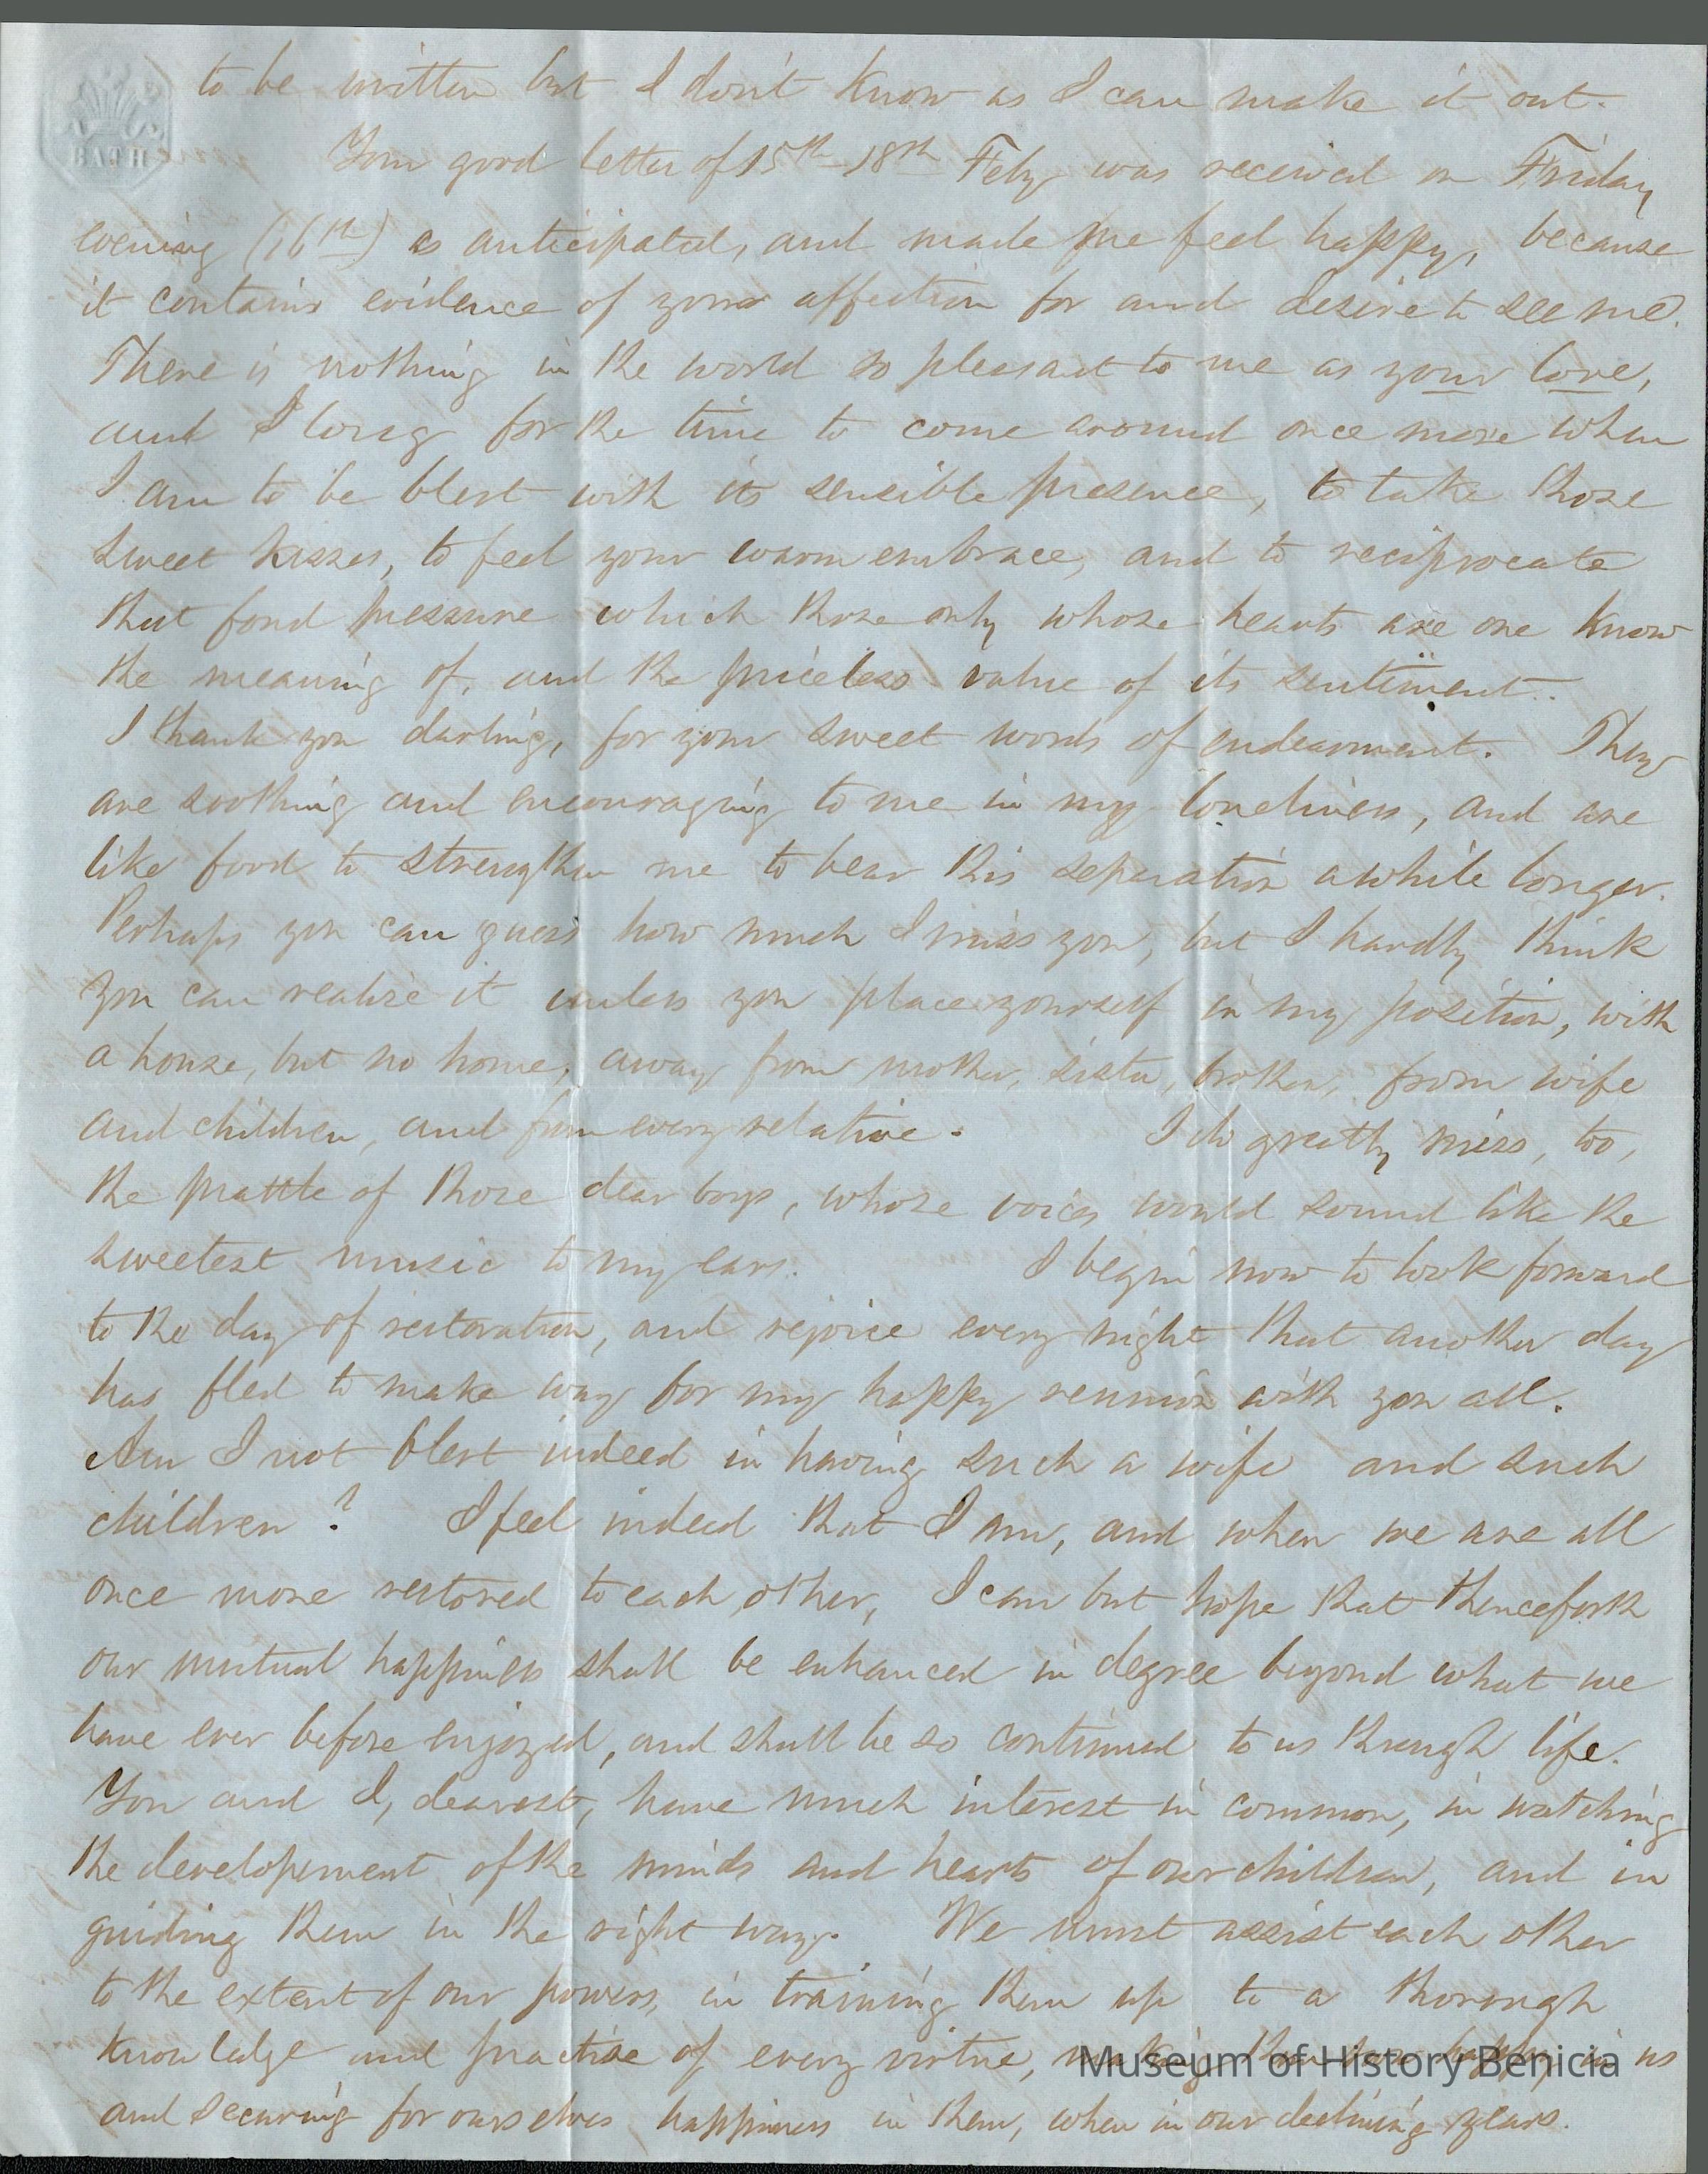 BATH
to be written but I don't know as I can make it out.
Your good letter of 15th-18th Feby was received on Friday
evening (16th) as anticipated, and made me feel happy, because
it contains evidence of your affection for and desire to see me.
There is nothing in the world so pleasant to me as your love,
and I long for the time to come around once more when
I am to be blest with its sensible presence, to take those
sweet kisses, to feel your warm embrace, and to reciprocate
that fond pressure which those only whose hearts are one know
the meaning of, and the priceless value of its sentiment.
I thank you darling, for your sweet words of endearment. They
are soothing and encouraging to me in my loneliness, and are
like food to strengthen me to bear this separation awhile longer.
Perhaps you can guess how much I miss you, but I hardly think
you can realize it unless you place yourself in my position, with
a house, but no home, away from mother, sister, brother, from wife
and children, and from every relative. I do greatly miss, too,
the prattle of those dear boys, whose voices would sound like the
sweetest music to my ears. I begin now to look forward
to the day of restoration, and rejoice every night that another day
has fled to make way for my happy reunion with you all.
Am I not blest indeed in having such a wife and such
children? I feel indeed that I am, and when we are all
once more restored to each other, I can but hope that thenceforth
our mutual happiness shall be enhanced in degree beyond what we
have ever before enjoyed, and shall be so continued to us through life.
You and I, dearest, have much interest in common, in watching
the developement of the minds and hearts of our children, and in
guiding them in the right way. We must assist each other
to the extent of our powers, in training them up to a thorough
knowledge and practise of every virtue, making them happy in us
and securing for ourselves happiness in them, when in our declining years.
Museum of History Benicia